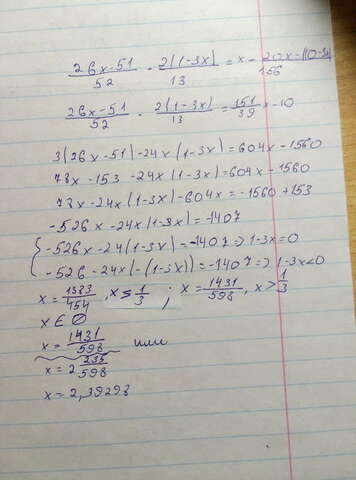 26x-51/52 - 2(1-3x)/13 = x - 20x-(10-3x)/156
26x-51/52 - 2(1-3x)/13 = 151/39 x-10
3(26x-51)-24x(1-3x)=604x-1560
78x-153-24x(1-3x)=604x-1560
78x-24x(1-3x)-604x=-1560+153
-526x-24x(1-3x)=-1407
{-526x-24(1-3x)=-1407⇒1-3x=0
-526-24x(-(1-3x))=-1407⇒1-3x<0
x=1383/454, x≤1/3; x=1431/598, x>1/3
x∈∅
x=1431/598 или
x=2 235/598
x=2,39298